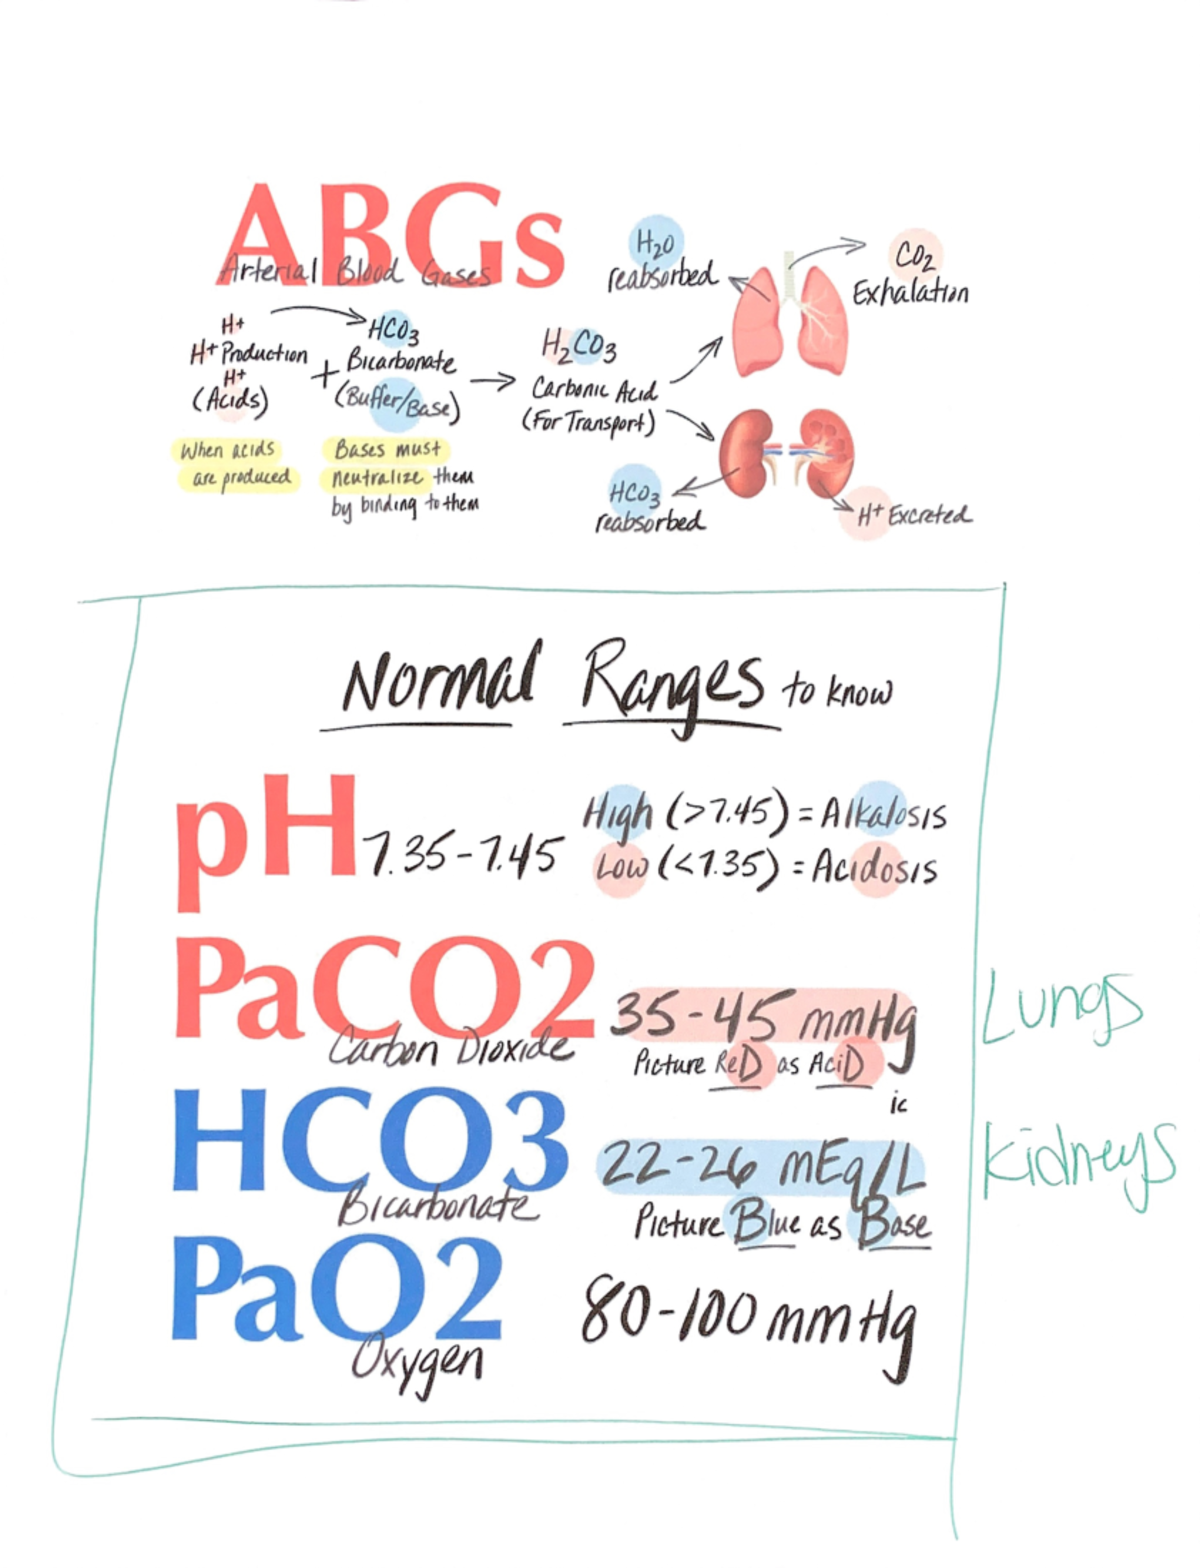 ABGs
Arterial Blood Gases
H+
H+ Production
H+
(Acids)
+
HCO3
Bicarbonate
(Buffer/Base)
When acids
are produced
Bases must
neutralize them
by binding to them
H2CO3
Carbonic Acid
(For Transport)
H2O
reabsorbed
CO2
Exhalation
HCO3
reabsorbed
H+ Excreted
Normal Ranges to know
pH 7.35-7.45
High (>7.45) = Alkalosis
Low (<7.35) = Acidosis
PaCO2 35-45 mmHg
Carbon Dioxide
Picture ReD as AciD
ic
Lungs
HCO3 22-26 mEq/L
Bicarbonate
Picture Blue as Base
Kidneys
PaO2 80-100 mmHg
Oxygen